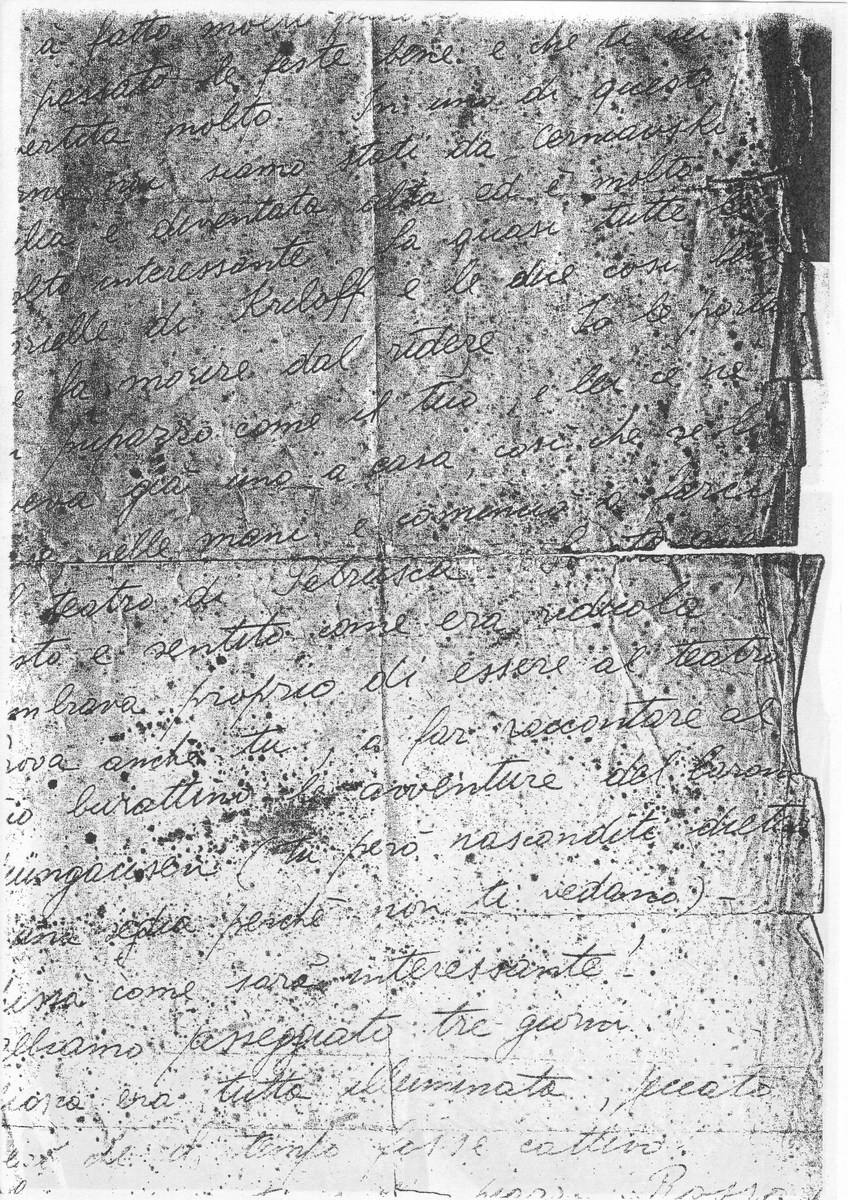 à fatto molti
passato le feste bene e che ti sei
vertita molto. In uno di questi
noi siamo stati da Cermanski
lia è diventata alta ed è molto
olto interessante. Sa quasi tutte le
di Kriloff e le dice così bene
e fa morire dal ridere. Io le portai
pupazzo come il tuo, e lei ce ne
veva già uno a casa, così che se li
nelle mani e cominciò a farci
l teatro di Petruscka.
sto e sentito come era ridicola,
mbrava proprio di essere al teatro
rova anche tu, a far raccontare al
uo burattino le avventure del baron
Müngausen (tu però nasconditi dietro
una sedia perchè non ti vedano) -
hissà come sarà interessante!
bbiamo passeggiato tre giorni.
era tutta illuminata, peccato
tempo fosse cattivo.